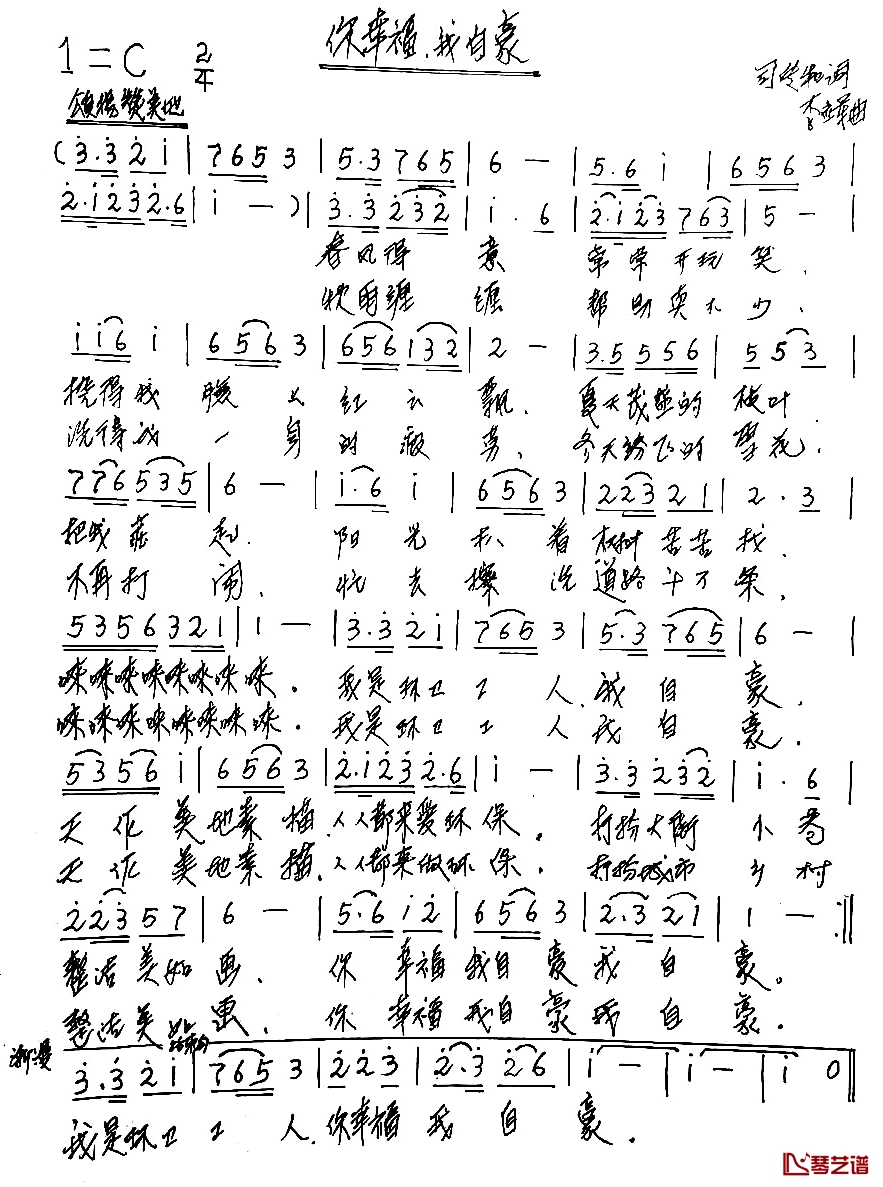 你幸福,我自豪
1=C 2/4
司传和词
曲
颂扬赞美地
(3.3 2 i | 7 6 5 3 | 5.3 7 6 5 | 6 — | 5.6 i | 6 5 6 3 |
2.i 2 3 2.6 | i — ) | 3.3 2 3 2 | i . 6 | 2.i 2 3 7 6 3 | 5 — |
春风得 意 常常开玩笑,
秋雨缠 缠 帮助真不少,
i i 6 i | 6 5 6 3 | 6 5 6 1 3 2 | 2 — | 3.5 5 5 5 6 | 5 5 3 |
搅得我 腾 红云 飘, 夏天茂盛的 枝叶
洗得我 一身的疲 劳, 冬天纷飞的 雪花,
7 7 6 5 3 5 | 6 — | i.6 i | 6 5 6 3 | 2 2 3 2 1 | 2 . 3 |
把我 起, 阳光 着树苦苦找,
不再打 闹, 忙去 擦 洗道路千万条,
5 3 5 6 3 2 1 | 1 — | 3.3 2 i | 7 6 5 3 | 5.3 7 6 5 | 6 — |
唻唻唻唻唻唻唻唻. 我是环卫工 人,我 自 豪,
唻唻唻唻唻唻唻唻. 我是环卫工 人我 自 豪,
5 3 5 6 i | 6 5 6 3 | 2.i 2 3 2.6 | i — | 3.3 2 3 2 | i . 6 |
天作 美 地素 描,人人都来爱环 保. 打扮大街 小巷
天作 美 地素 描,人人都来做环 保. 打扮城市 乡村
2 2 3 5 7 | 6 — | 5.6 i 2 | 6 5 6 3 | 2.3 2 1 | 1 — :||
整洁美如 画, 你 幸福 我自 豪我 自 豪。
整洁美如 画, 你 幸福 我自 豪我 自 豪.
渐慢
结束句
3.3 2 i | 7 6 5 3 | 2 2 3 | 2.3 2 6 | i — | i — | i 0 ||
我是环卫工 人,你幸福 我 自 豪.
琴艺谱